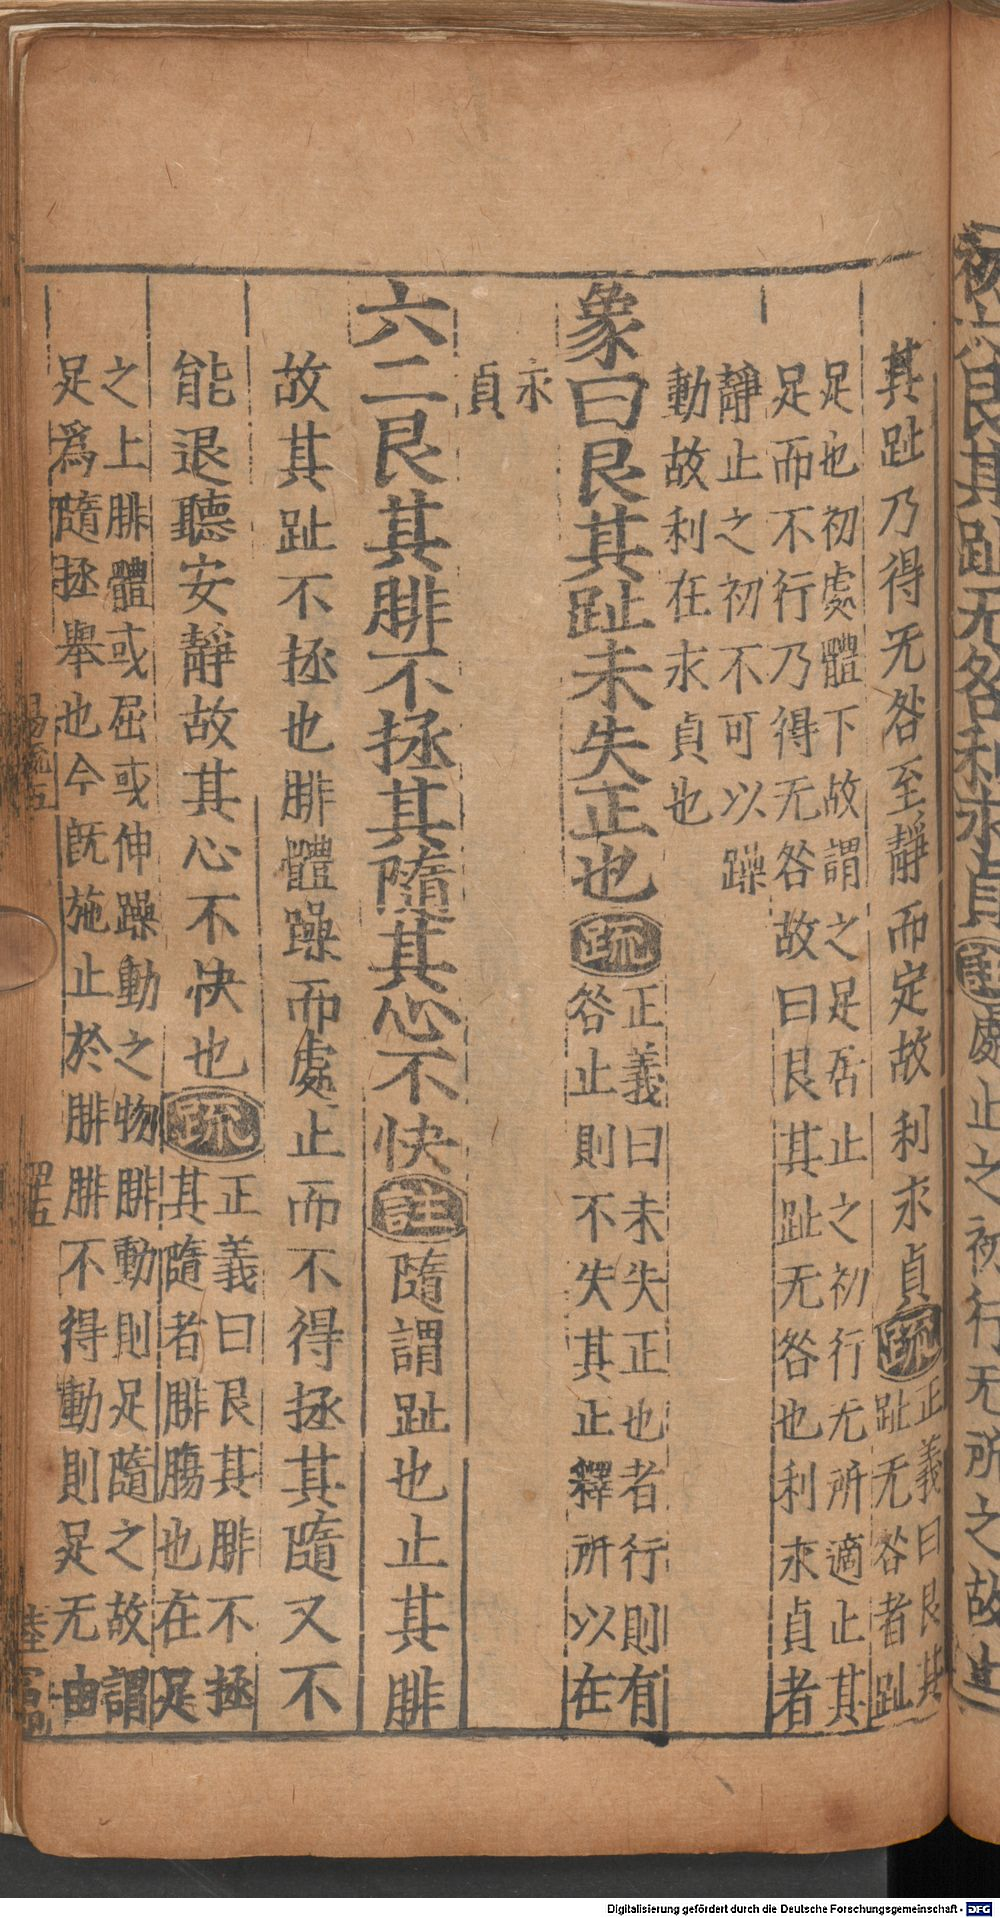 初六艮其趾无咎利永貞註處止之初行无所之故止
其趾乃得无咎至靜而定故利永貞疏正義曰艮其
趾无咎者趾
足也初處體下故謂之足居止之初行无所適止其
足而不行乃得无咎故曰艮其趾无咎也利永貞者
靜止之初不可以躁
動故利在永貞也
象曰艮其趾未失正也疏正義曰未失正也者行則有
咎止則不失其正釋所以在
永
貞
六二艮其腓不拯其隨其心不快註隨謂趾也止其腓
故其趾不拯也腓體躁而處止而不得拯其隨又不
能退聽安靜故其心不快也疏正義曰艮其腓不拯
其隨者腓膓也在足
之上腓體或屈或伸躁動之物腓動則足隨之故謂
足為隨拯舉也今旣施止於腓腓不得動則足无由
易疏五
四五
Digitalisierung gefördert durch die Deutsche Forschungsgemeinschaft - DFG